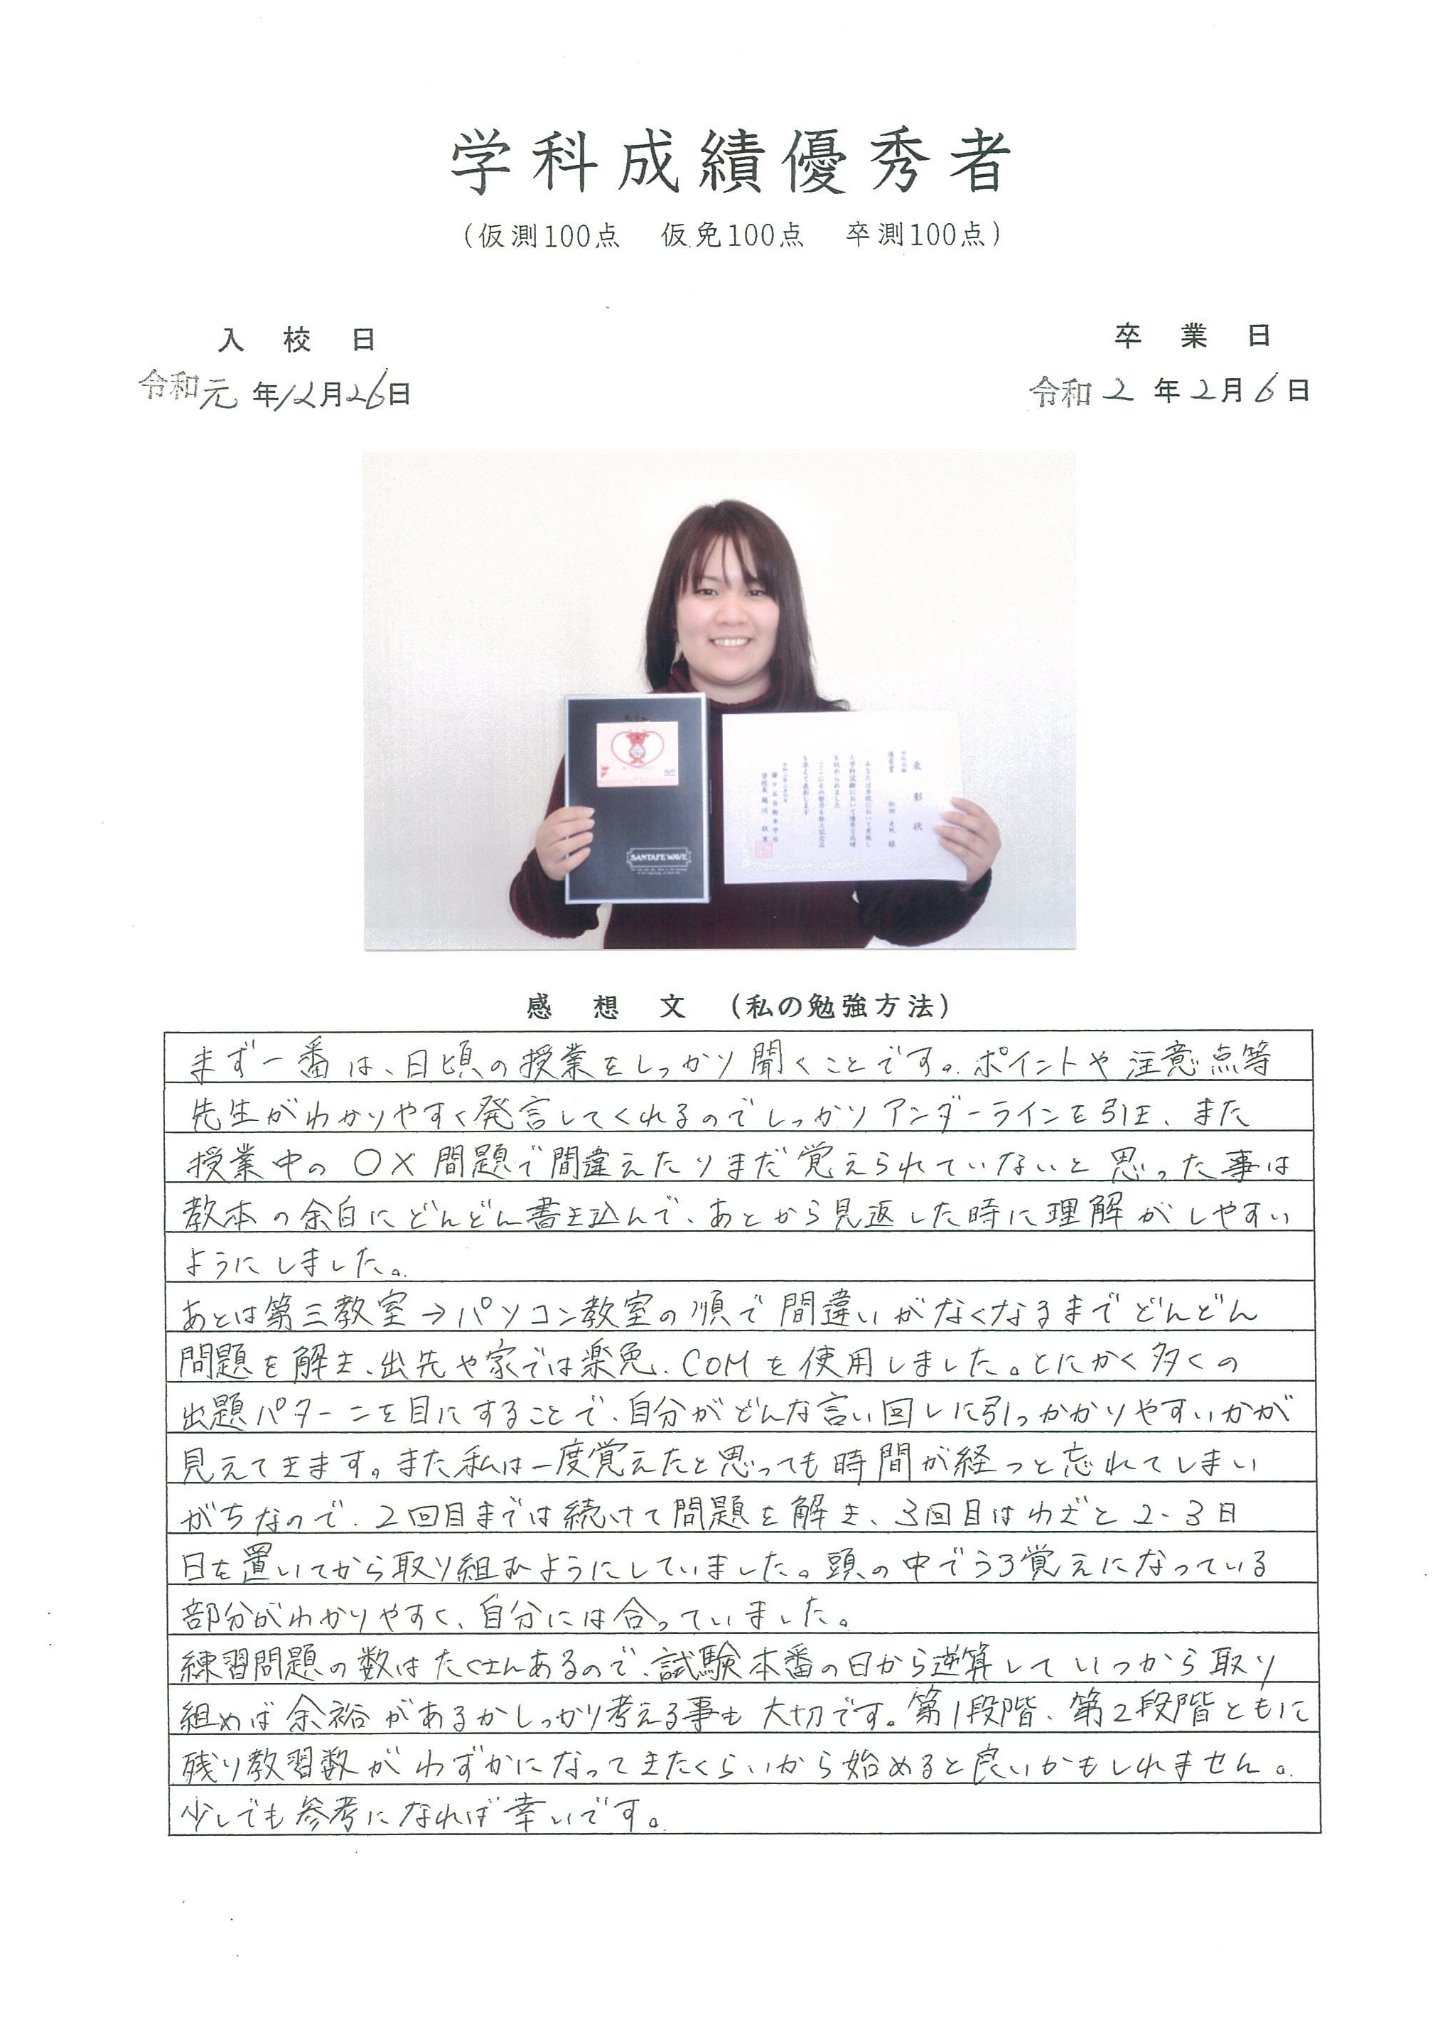 学科成績優秀者
(仮測100点 仮免100点 卒測100点)
入校日
令和元年12月26日
卒業日
令和2年2月6日
表彰状
学科試験
優秀賞
SANTAFE WAVE
感想文 (私の勉強方法)
まず一番は、日頃の授業をしっかり聞くことです。ポイントや注意点等
先生がわかりやすく発言してくれるのでしっかりアンダーラインを引き、また
授業中の○×問題で間違えたりまだ覚えられていないと思った事は
教本の余白にどんどん書き込んで、あとから見返した時に理解がしやすい
ようにしました。
あとは第三教室→パソコン教室の順で間違いがなくなるまでどんどん
問題を解き、出先や家では楽免.COMを使用しました。とにかく多くの
出題パターンを目にすることで、自分がどんな言い回しに引っかかりやすいかが
見えてきます。また私は一度覚えたと思っても時間が経つと忘れてしまい
がちなので、2回目までは続けて問題を解き、3回目はわざと2、3日
日を置いてから取り組むようにしていました。頭の中でうろ覚えになっている
部分がわかりやすく、自分には合っていました。
練習問題の数はたくさんあるので、試験本番の日から逆算していつから取り
組めば余裕があるかしっかり考える事も大切です。第1段階、第2段階ともに
残り教習数がわずかになってきたくらいから始めると良いかもしれません。
少しでも参考になれば幸いです。